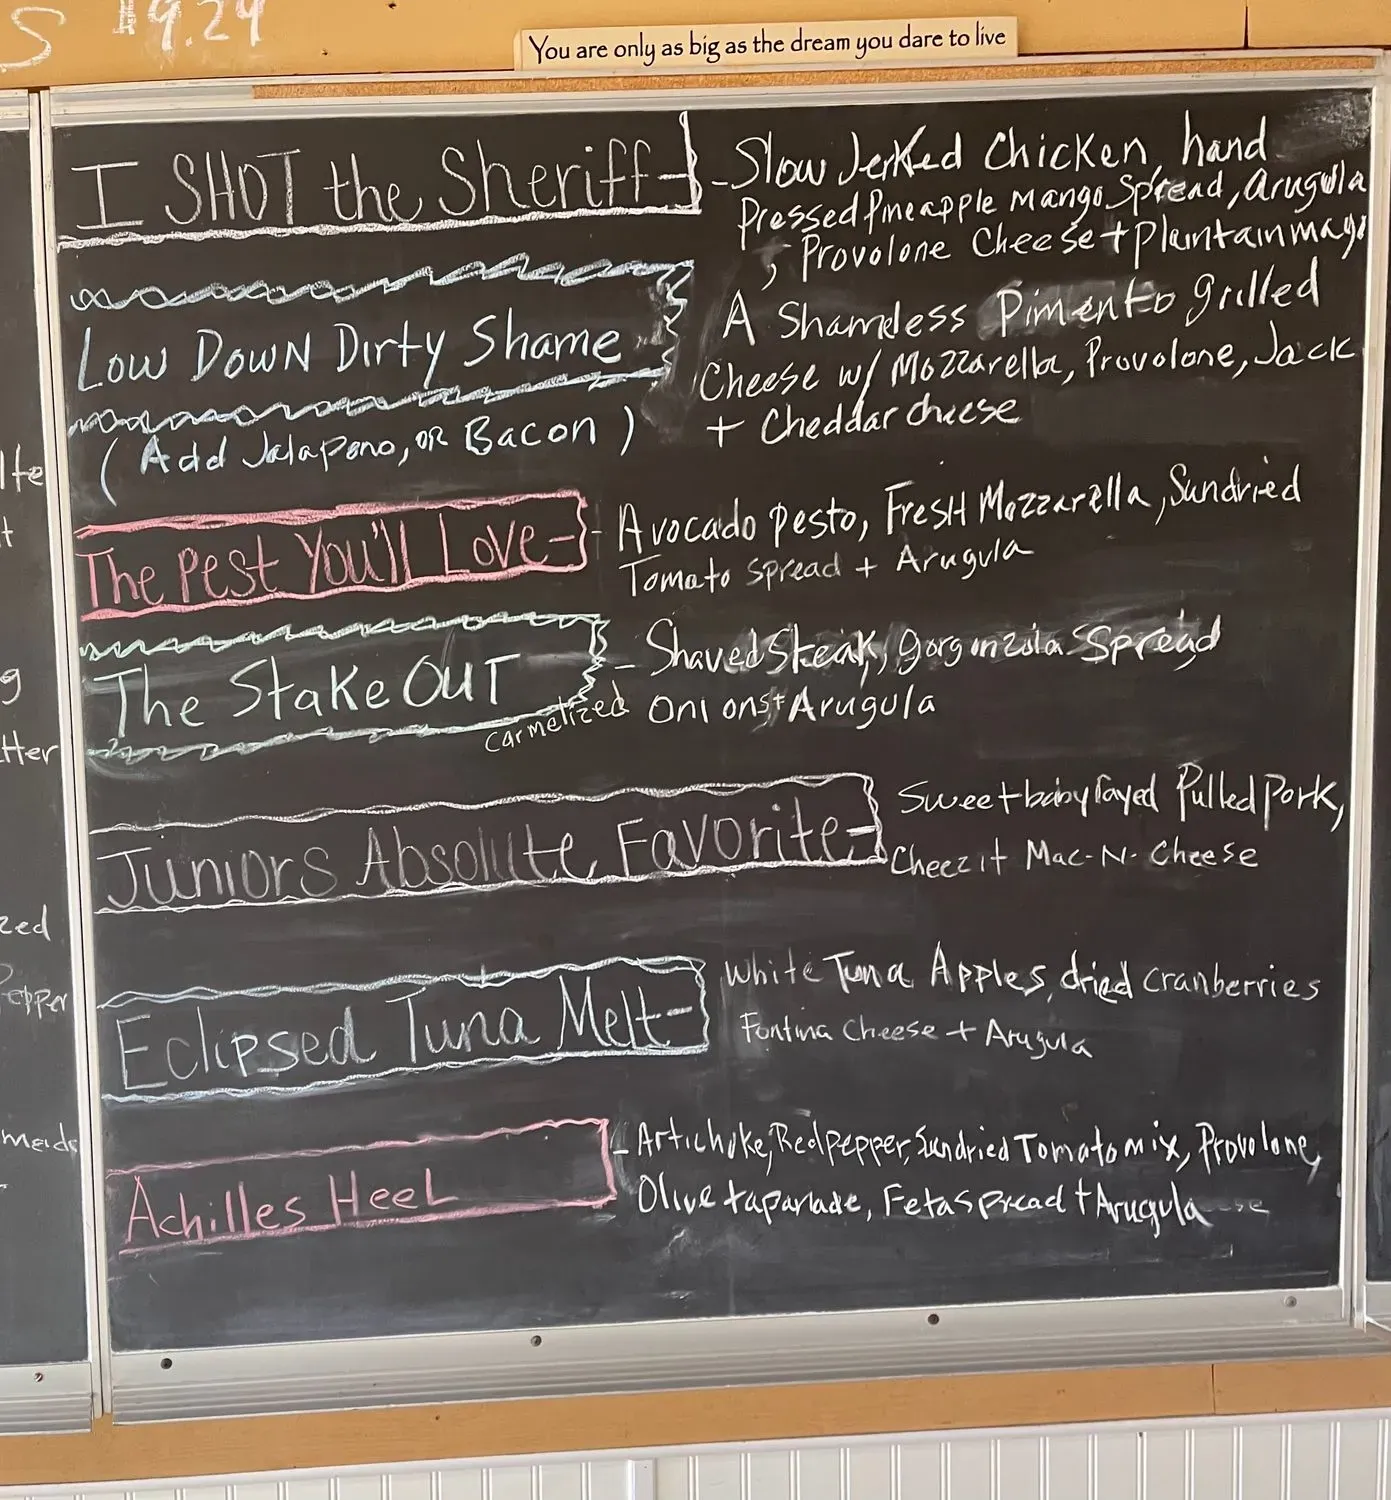 S $9.29
You are only as big as the dream you dare to live
I SHOT the Sheriff- - Slow Jerked Chicken, hand
Pressed Pineapple mango Spread, Arugula
, Provolone Cheese + Plaintain mayo
Low Down Dirty Shame
(Add Jalapeno, OR Bacon)
A Shameless Pimento grilled
Cheese w/ Mozzarella, Provolone, Jack
+ Cheddar cheese
The Pest You'll Love- - Avocado pesto, Fresh Mozzarella, Sundried
Tomato Spread + Arugula
The Stake OUT - Shaved Steak, gorgonzola Spread
carmelized Onions + Arugula
Juniors Absolute Favorite- Sweet baby rayed Pulled Pork,
Cheez it Mac-N-Cheese
Eclipsed Tuna Melt- White Tuna Apples, dried cranberries
Fontina Cheese + Arugula
Achilles Heel - Artichoke, Red pepper, Sundried Tomato mix, Provolone,
Olive taparlade, Feta spread + Arugula
tter
zed
Pepper